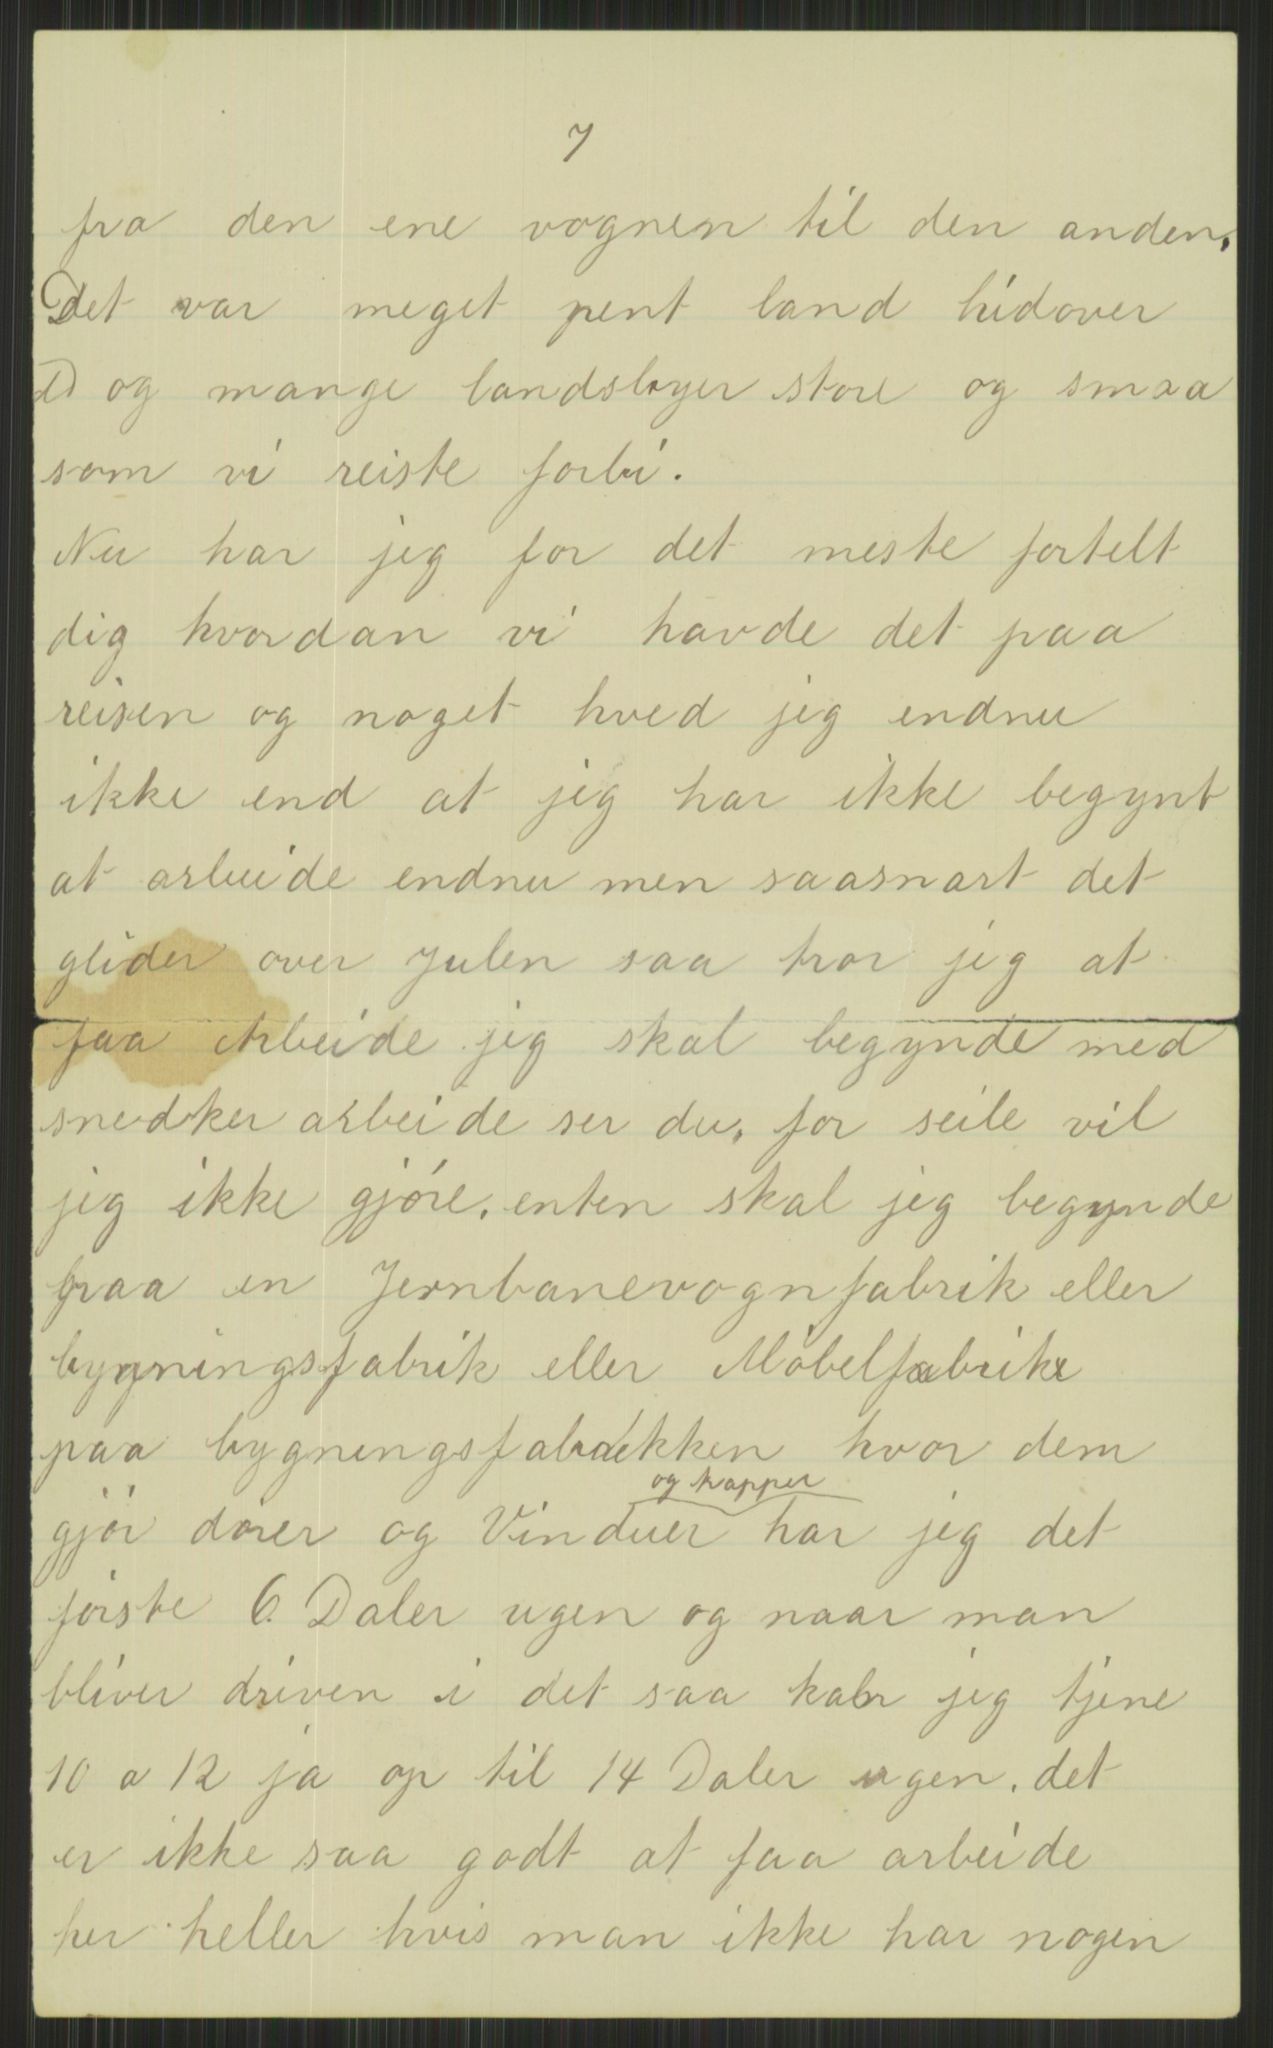 7
fra den ene vognen til den anden.
Det var meget pent land hidover
og mange landsbyer store og smaa
som vi reiste forbi.
Nu har jeg for det meste fortelt
dig hvordan vi havde det paa
reisen og noget hved jeg endnu
ikke end at jeg har ikke begynt
at arbeide endnu men saasnart det
glider over Julen saa tror jeg at
faa Arbeide jeg skal begynde med
snedker arbeide ser du, for seile vil
jeg ikke gjöre, enten skal jeg begynde
paa en Jernbanevognfabrik eller
bygningsfabrik eller Möbelfabrik
paa bygningsfabrikken hvor dem
og trapper
gjör dörer og Vinduer har jeg det
förste 6. Daler ugen og naar man
bliver driven i det saa kan jeg tjene
10 a 12 ja op til 14 Daler ugen. det
er ikke saa godt at faa arbeide
her heller hvis man ikke har nogen